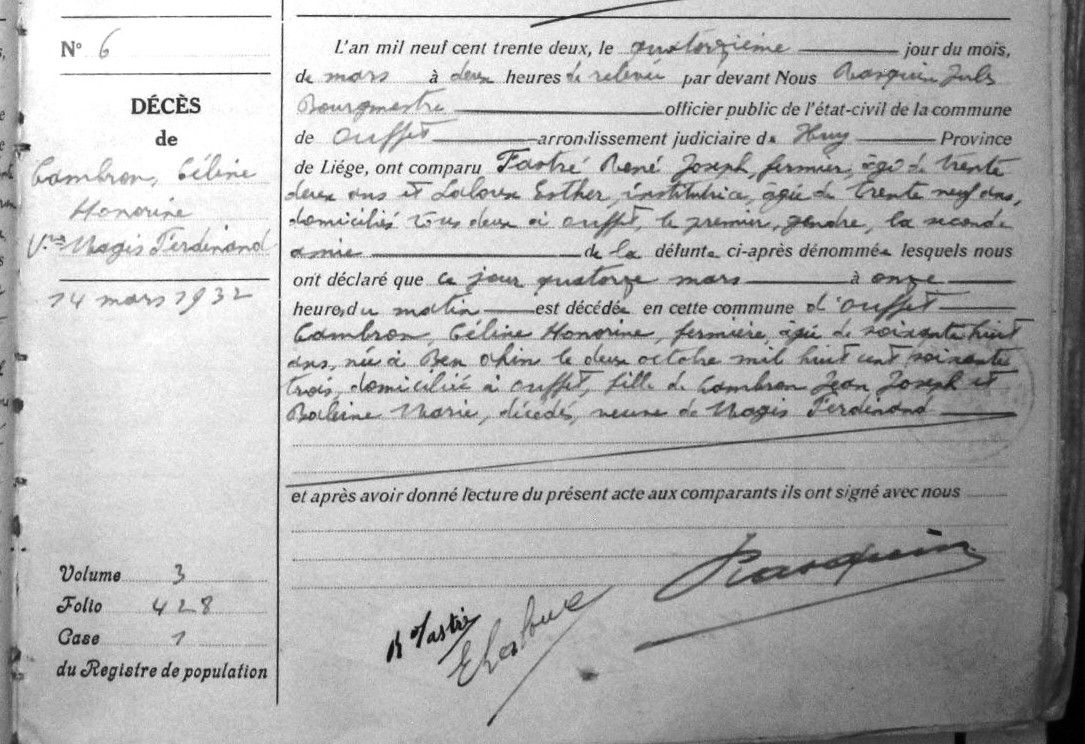 N° 6
DÉCÈS
de
Cambron, Céline
Honorine
V.ve Magis Ferdinand
14 mars 1932
Volume 3
Folio 428
Case 1
du Registre de population
L'an mil neuf cent trente deux, le quatorzième jour du mois,
de mars à deux heures de relevée par devant Nous Rasquin Jules
Bourgmestre officier public de l'état-civil de la commune
de Ouffet arrondissement judiciaire de Huy Province
de Liége, ont comparu Fastré René Joseph, fermier, âgé de trente
deux ans et Laloux Esther, institutrice, âgée de trente neuf ans,
domiciliés tous deux à Ouffet, le premier, gendre, la seconde
amie de la défunte ci-après dénommée lesquels nous
ont déclaré que ce jour quatorze mars à onze
heures du matin est décédée en cette commune d'Ouffet
Cambron, Céline Honorine, fermière, âgée de soixante huit
ans, née à Ben Ahin le deux octobre mil huit cent soixante
trois, domiciliée à Ouffet, fille de Cambron Jean Joseph et
Marie, décédés, veuve de Magis Ferdinand
et après avoir donné lecture du présent acte aux comparants ils ont signé avec nous
Rasquin
R Fastré
E Laloux